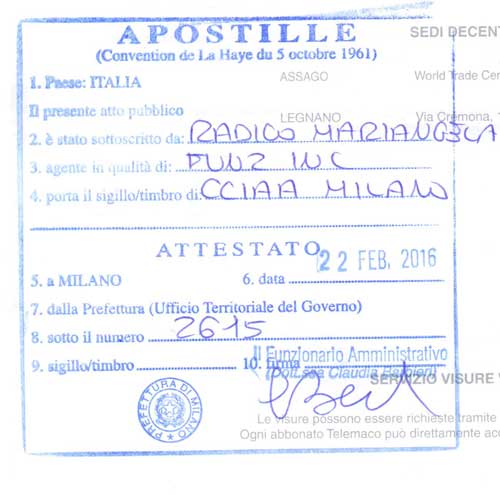 APOSTILLE
SEDI DECENT
(Convention de La Haye du 5 octobre 1961)
1. Paese: ITALIA
ASSAGO
World Trade Cen
Il presente atto pubblico
LEGNANO
Via Cremona, 1
2. è stato sottoscritto da: RADICO MARIANGELA
3. agente in qualità di: FUNZ INC
4. porta il sigillo/timbro di CCIAA MILANO
ATTESTATO
22 FEB. 2016
5. a MILANO
6. data
7. dalla Prefettura (Ufficio Territoriale del Governo)
8. sotto il numero 2615
Il Funzionario Amministrativo
9. sigillo/timbro
10. firma
(Dott.ssa Claudia Barbieri)
SERVIZIO VISURE
PREFETTURA DI MILANO
Le visure possono essere richieste tramite
Ogni abbonato Telemaco può direttamente acc